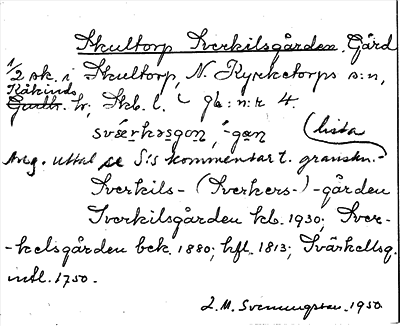 Skultorp Sverkilsgården. Gård
1/2 sk. i Skultorp, N. Kyrketorps s:n,
Kåkinds
Gudh. hr, Skb. l. gb:n:r 4.
svǽrkəsgoṉ, -gaṉ (lista
Ang. uttal se S:s kommentar t. granskn.-
Sverkils- (Sverkers-)-gården
Sverkilsgården kb. 1930; Sver-
-kelsgården bek. 1880; hfl. 1813; Svärkellsg.
intl. 1750.
L.M. Svenungsson. 1950